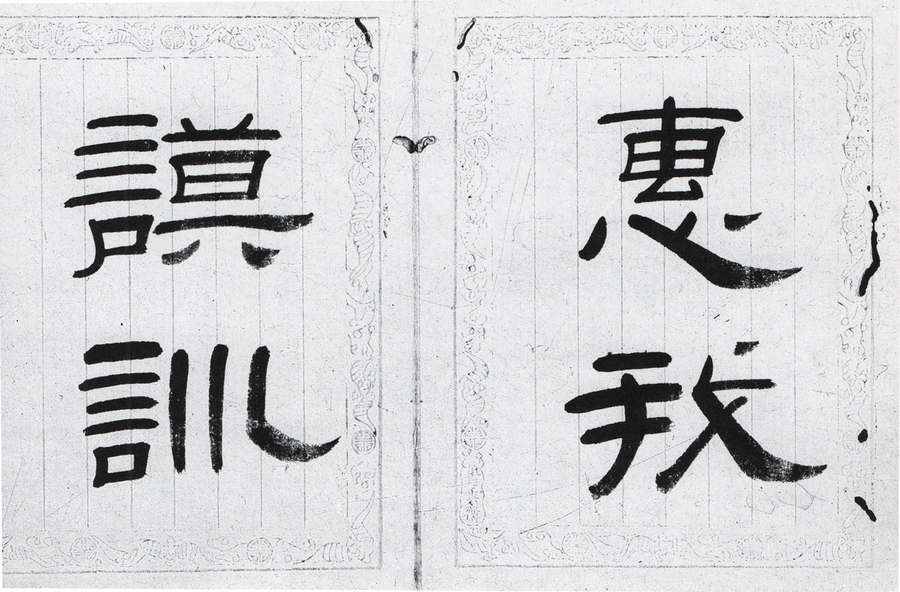 惠我
謨訓